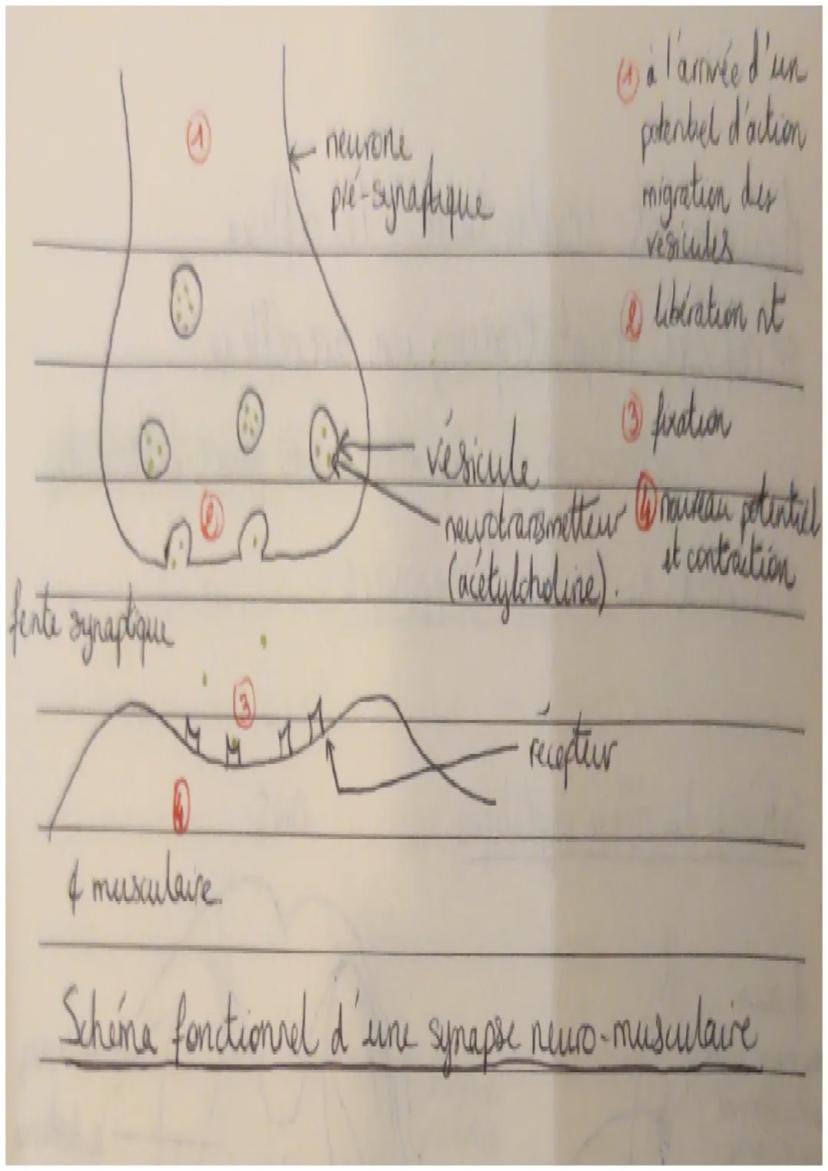 ① à l'arrivée d'un
potentiel d'action
migration des
vésicules
② libération nt
③ fixation
④ nouveau potentiel
et contraction
①
neurone
pré-synaptique
vésicule
neurotransmetteur
(acétylcholine).
②
fente synaptique
③
récepteur
④
¢ musculaire
Schéma fonctionnel d'une synapse neuro-musculaire